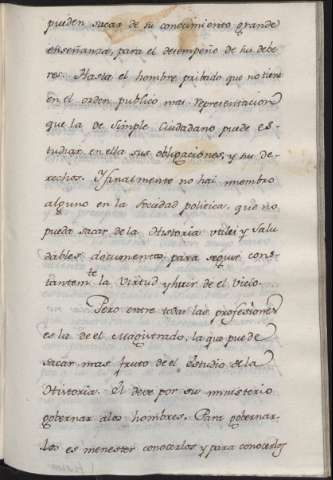 pueden sacar de su conocimiento grande
enseñanza, para el desempeño de su debe
res. Hasta el hombre pribado que no tiene
en el orden publico mas representacion
que la de Simple Ciudadano puede es-
tudiar en ella sus obligaciones, y su de-
rechos. Y finalmente no hai membro
alguno en la Sociedad politica, que no
pueda sacar de la Historia utiles y Salu
dables documentos para seguir cons-
tantem.te la Virtud y huir de el vicio.
Pero entre todas las profesiones
es la de el Magistrado, la que puede
sacar mas fruto de el estudio de la
Historia. El debe por su ministerio
gobernar a los hombres. Para gobernar-
los es menester conocerlos y para conocerlos